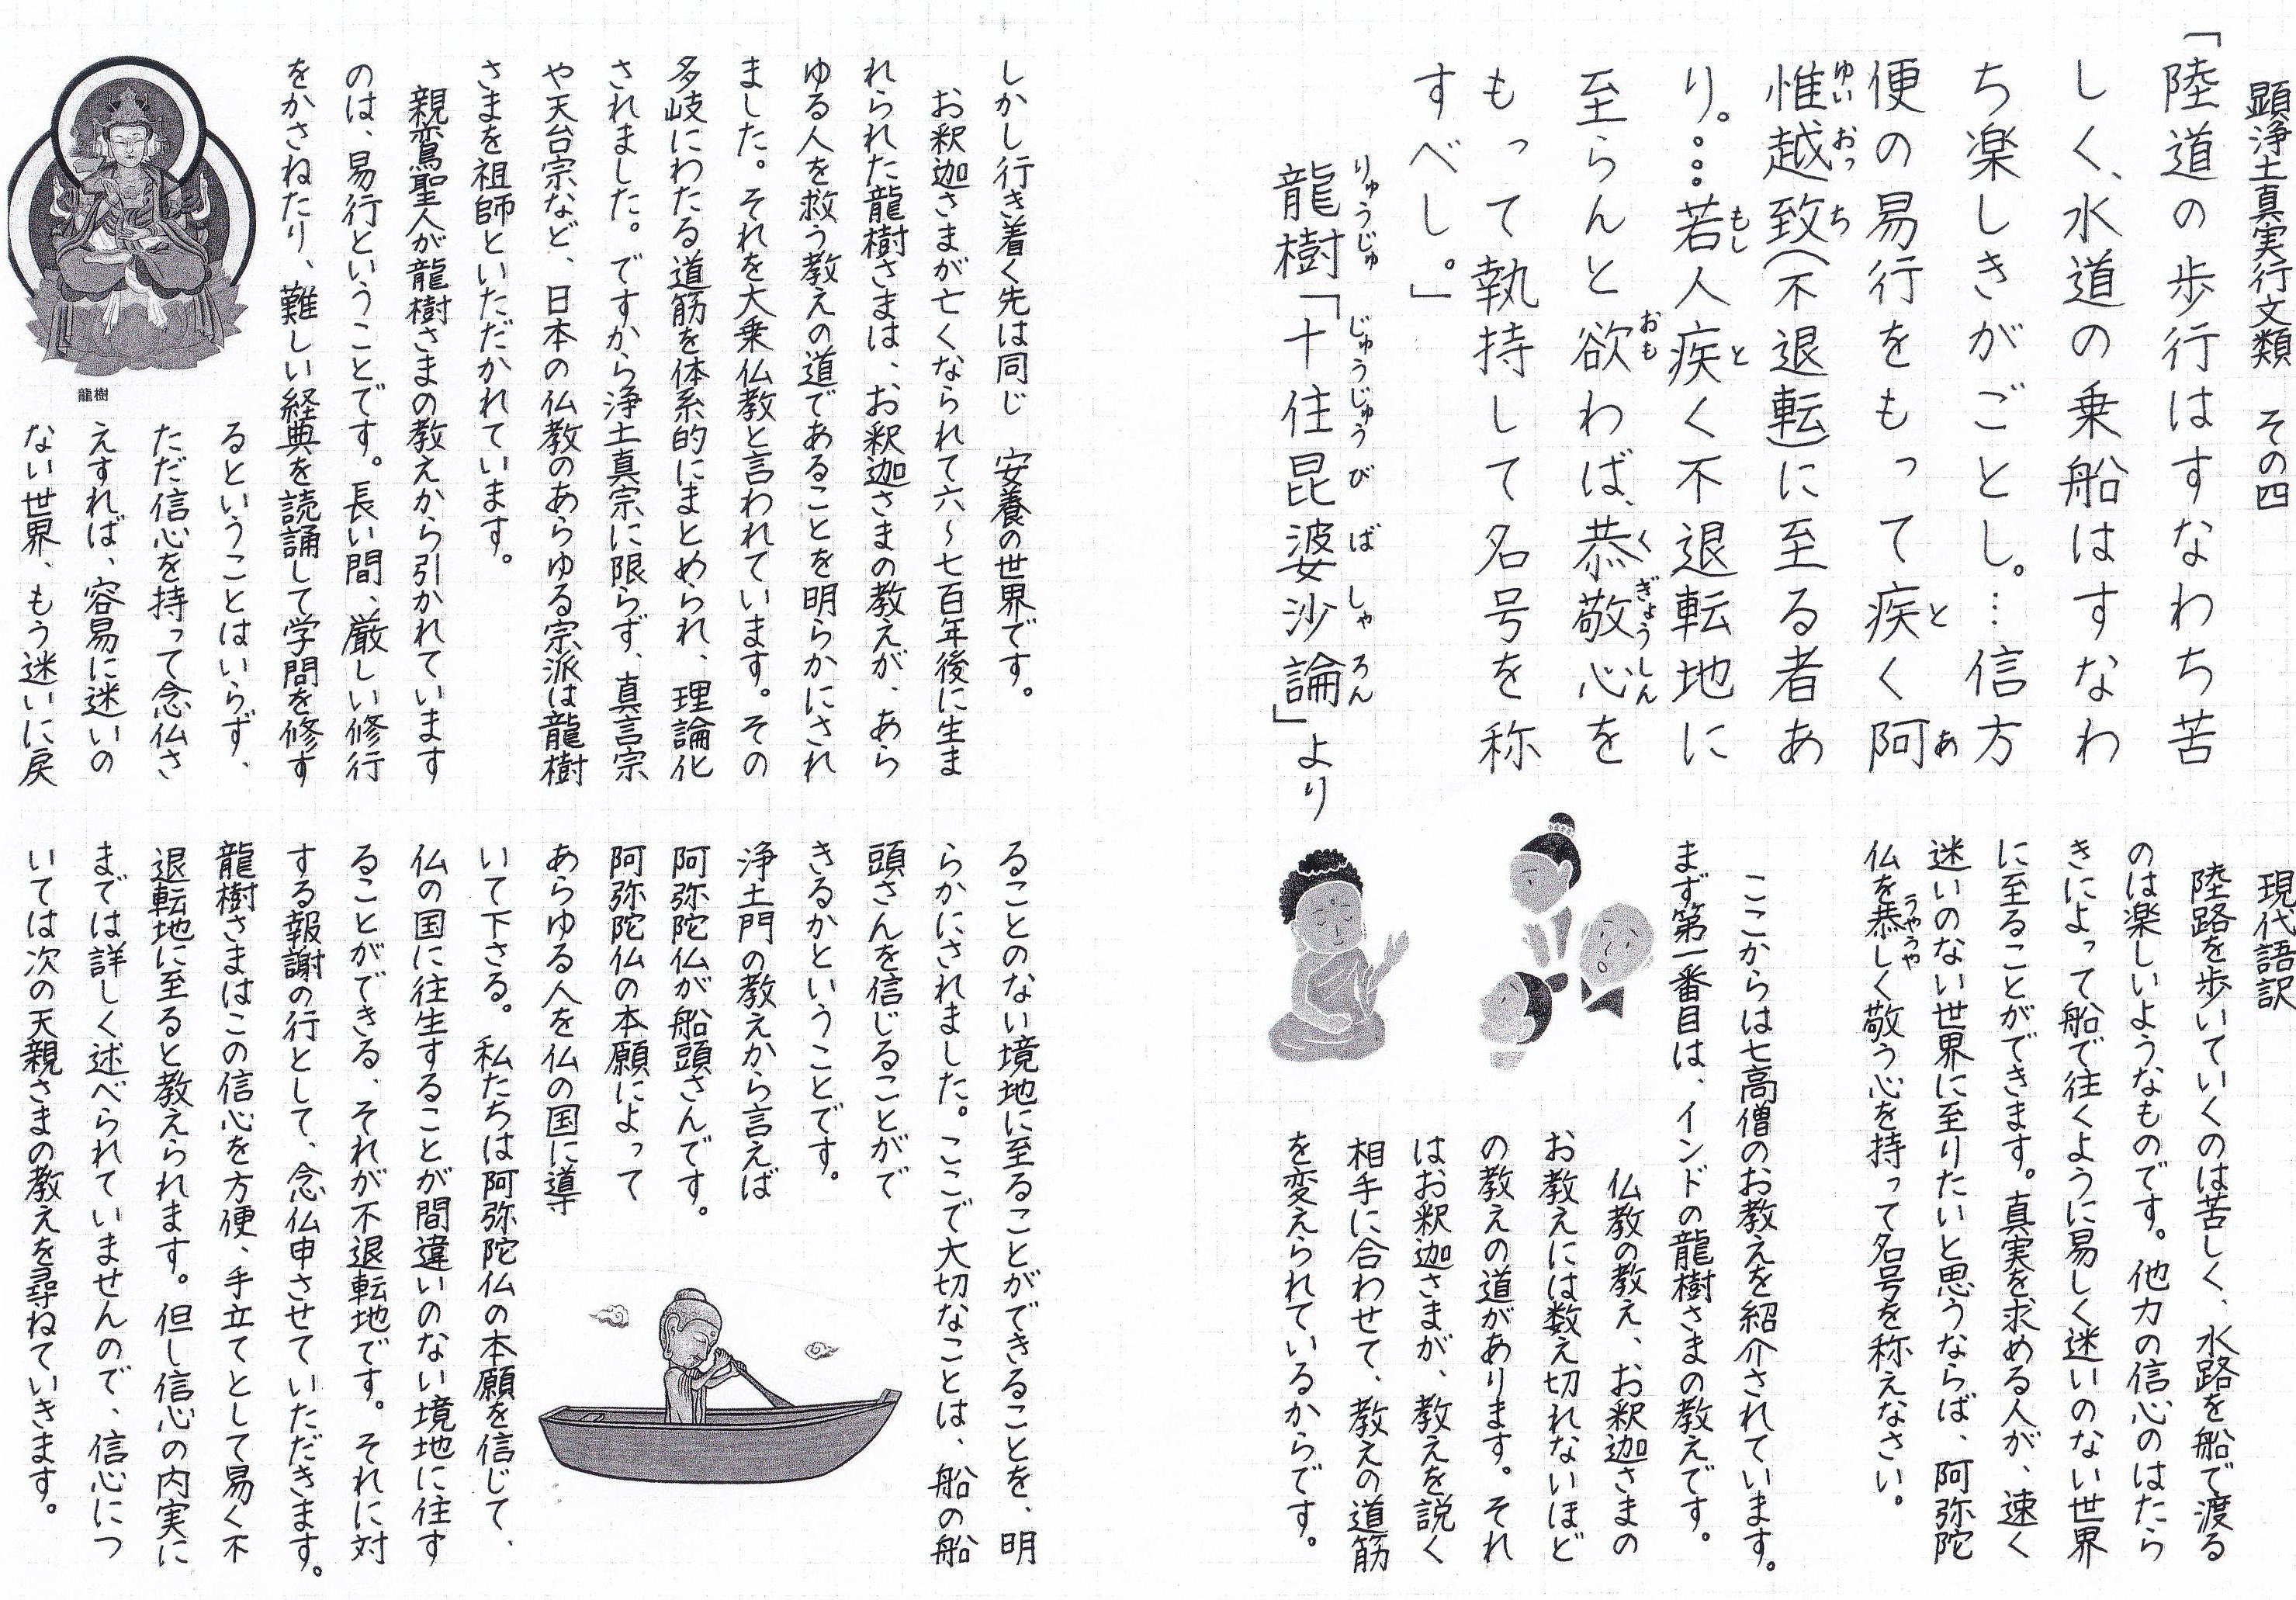 顕浄土真実行文類　その四
「陸道の歩行はすなわち苦
しく、水道の乗船はすなわ
ち楽しきがごとし。…信方
便の易行をもって疾く阿
惟越致(不退転)に至る者あ
り。…若人疾く不退転地に
至らんと欲わば、恭敬心を
もって執持して名号を称
すべし。」
龍樹「十住昆婆沙論」より
ゆいおっち
あ
と
もし
と
おも
くぎょうしん
りゅうじゅ　じゅうじゅうびばしゃろん
現代語訳
陸路を歩いていくのは苦しく、水路を船で渡る
のは楽しいようなものです。他力の信心のはたら
きによって船で往くように易しく迷いのない世界
に至ることができます。真実を求める人が、速く
迷いのない世界に至りたいと思うならば、阿弥陀
仏を恭しく敬う心を持って名号を称えなさい。
うやうや
ここからは七高僧のお教えを紹介されています。
まず第一番目は、インドの龍樹さまの教えです。
仏教の教え、お釈迦さまの
お教えには数え切れないほど
の教えの道があります。それ
はお釈迦さまが、教えを説く
相手に合わせて、教えの道筋
を変えられているからです。
しかし行き着く先は同じ　安養の世界です。
お釈迦さまが亡くなられて六～七百年後に生ま
れられた龍樹さまは、お釈迦さまの教えが、あら
ゆる人を救う教えの道であることを明らかにされ
ました。それを大乗仏教と言われています。その
多岐にわたる道筋を体系的にまとめられ、理論化
されました。ですから浄土真宗に限らず、真言宗
や天台宗など、日本の仏教のあらゆる宗派は龍樹
さまを祖師といただかれています。
親鸞聖人が龍樹さまの教えから引かれています
のは、易行ということです。長い間、厳しい修行
をかさねたり、難しい経典を読誦して学問を修す
るということはいらず、
ただ信心を持って念仏さ
えすれば、容易に迷いの
ない世界、もう迷いに戻
龍樹
ることのない境地に至ることができることを、明
らかにされました。ここで大切なことは、船の船
頭さんを信じることがで
きるかということです。
浄土門の教えから言えば
阿弥陀仏が船頭さんです。
阿弥陀仏の本願によって
あらゆる人を仏の国に導
いて下さる。私たちは阿弥陀仏の本願を信じて、
仏の国に往生することが間違いのない境地に住す
ることができる、それが不退転地です。それに対
する報謝の行として、念仏申させていただきます。
龍樹さまはこの信心を方便、手立てとして易く不
退転地に至ると教えられます。但し信心の内実に
までは詳しく述べられていませんので、信心につ
いては次の天親さまの教えを尋ねていきます。